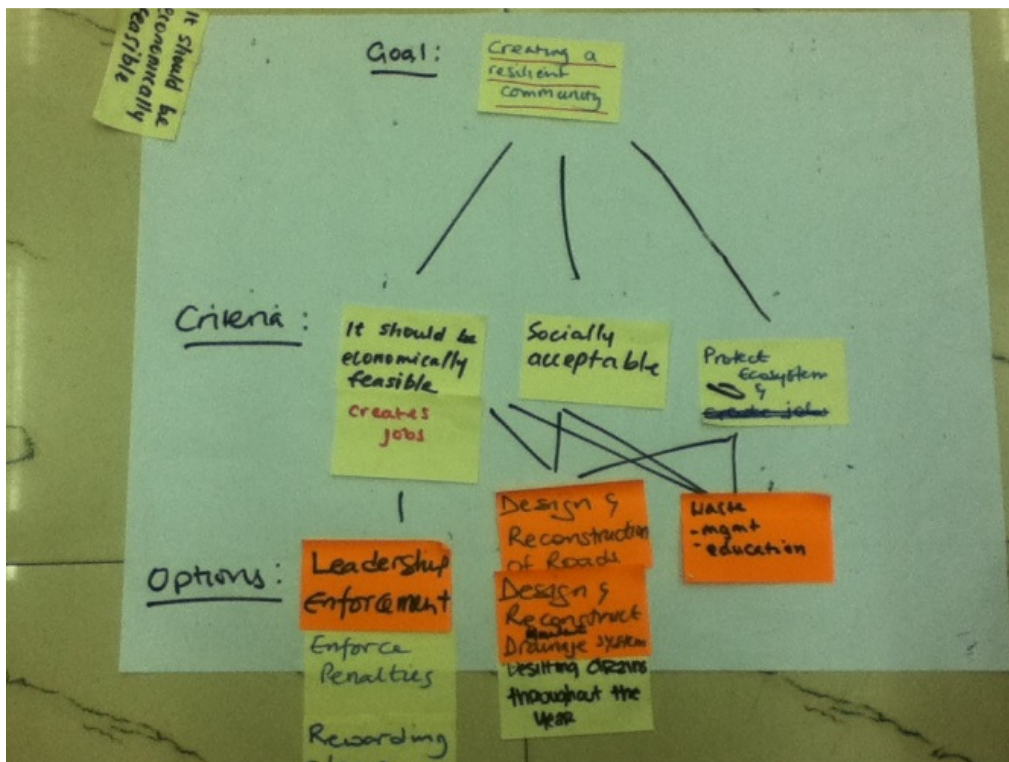 It should be
economically
feasible
Goal:
Creating a
resilient
community
Criteria:
It should be
economically
feasible
creates
jobs
Socially
acceptable
Protect
Ecosystem
&
create jobs
Options:
Leadership
Enforcement
Enforce
Penalties
Rewarding
Design &
Reconstruction
of Roads
Design &
Reconstruct
Drainage system
Desilting drains
throughout the
Year
Waste
-mgmt
-education